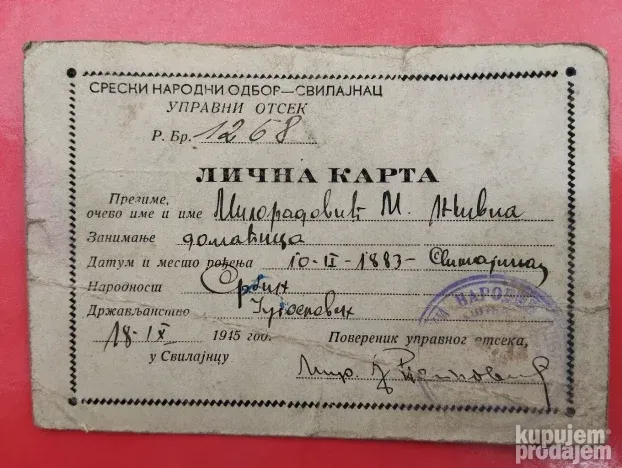 СРЕСКИ НАРОДНИ ОДБОР—СВИЛАЈНАЦ
УПРАВНИ ОТСЕК
Р. Бр. 1268
ЛИЧНА КАРТА
Презиме,
очево име и име Милорадовић М. Живка
Занимање домаћица
Датум и место рођења 10-II-1883- Свилајнац
Народност Србин
Држављанство
18-IX 1945 год.
Повереник управног отсека,
у Свилајнцу
НАРОДНИ
kupujem
prodajem